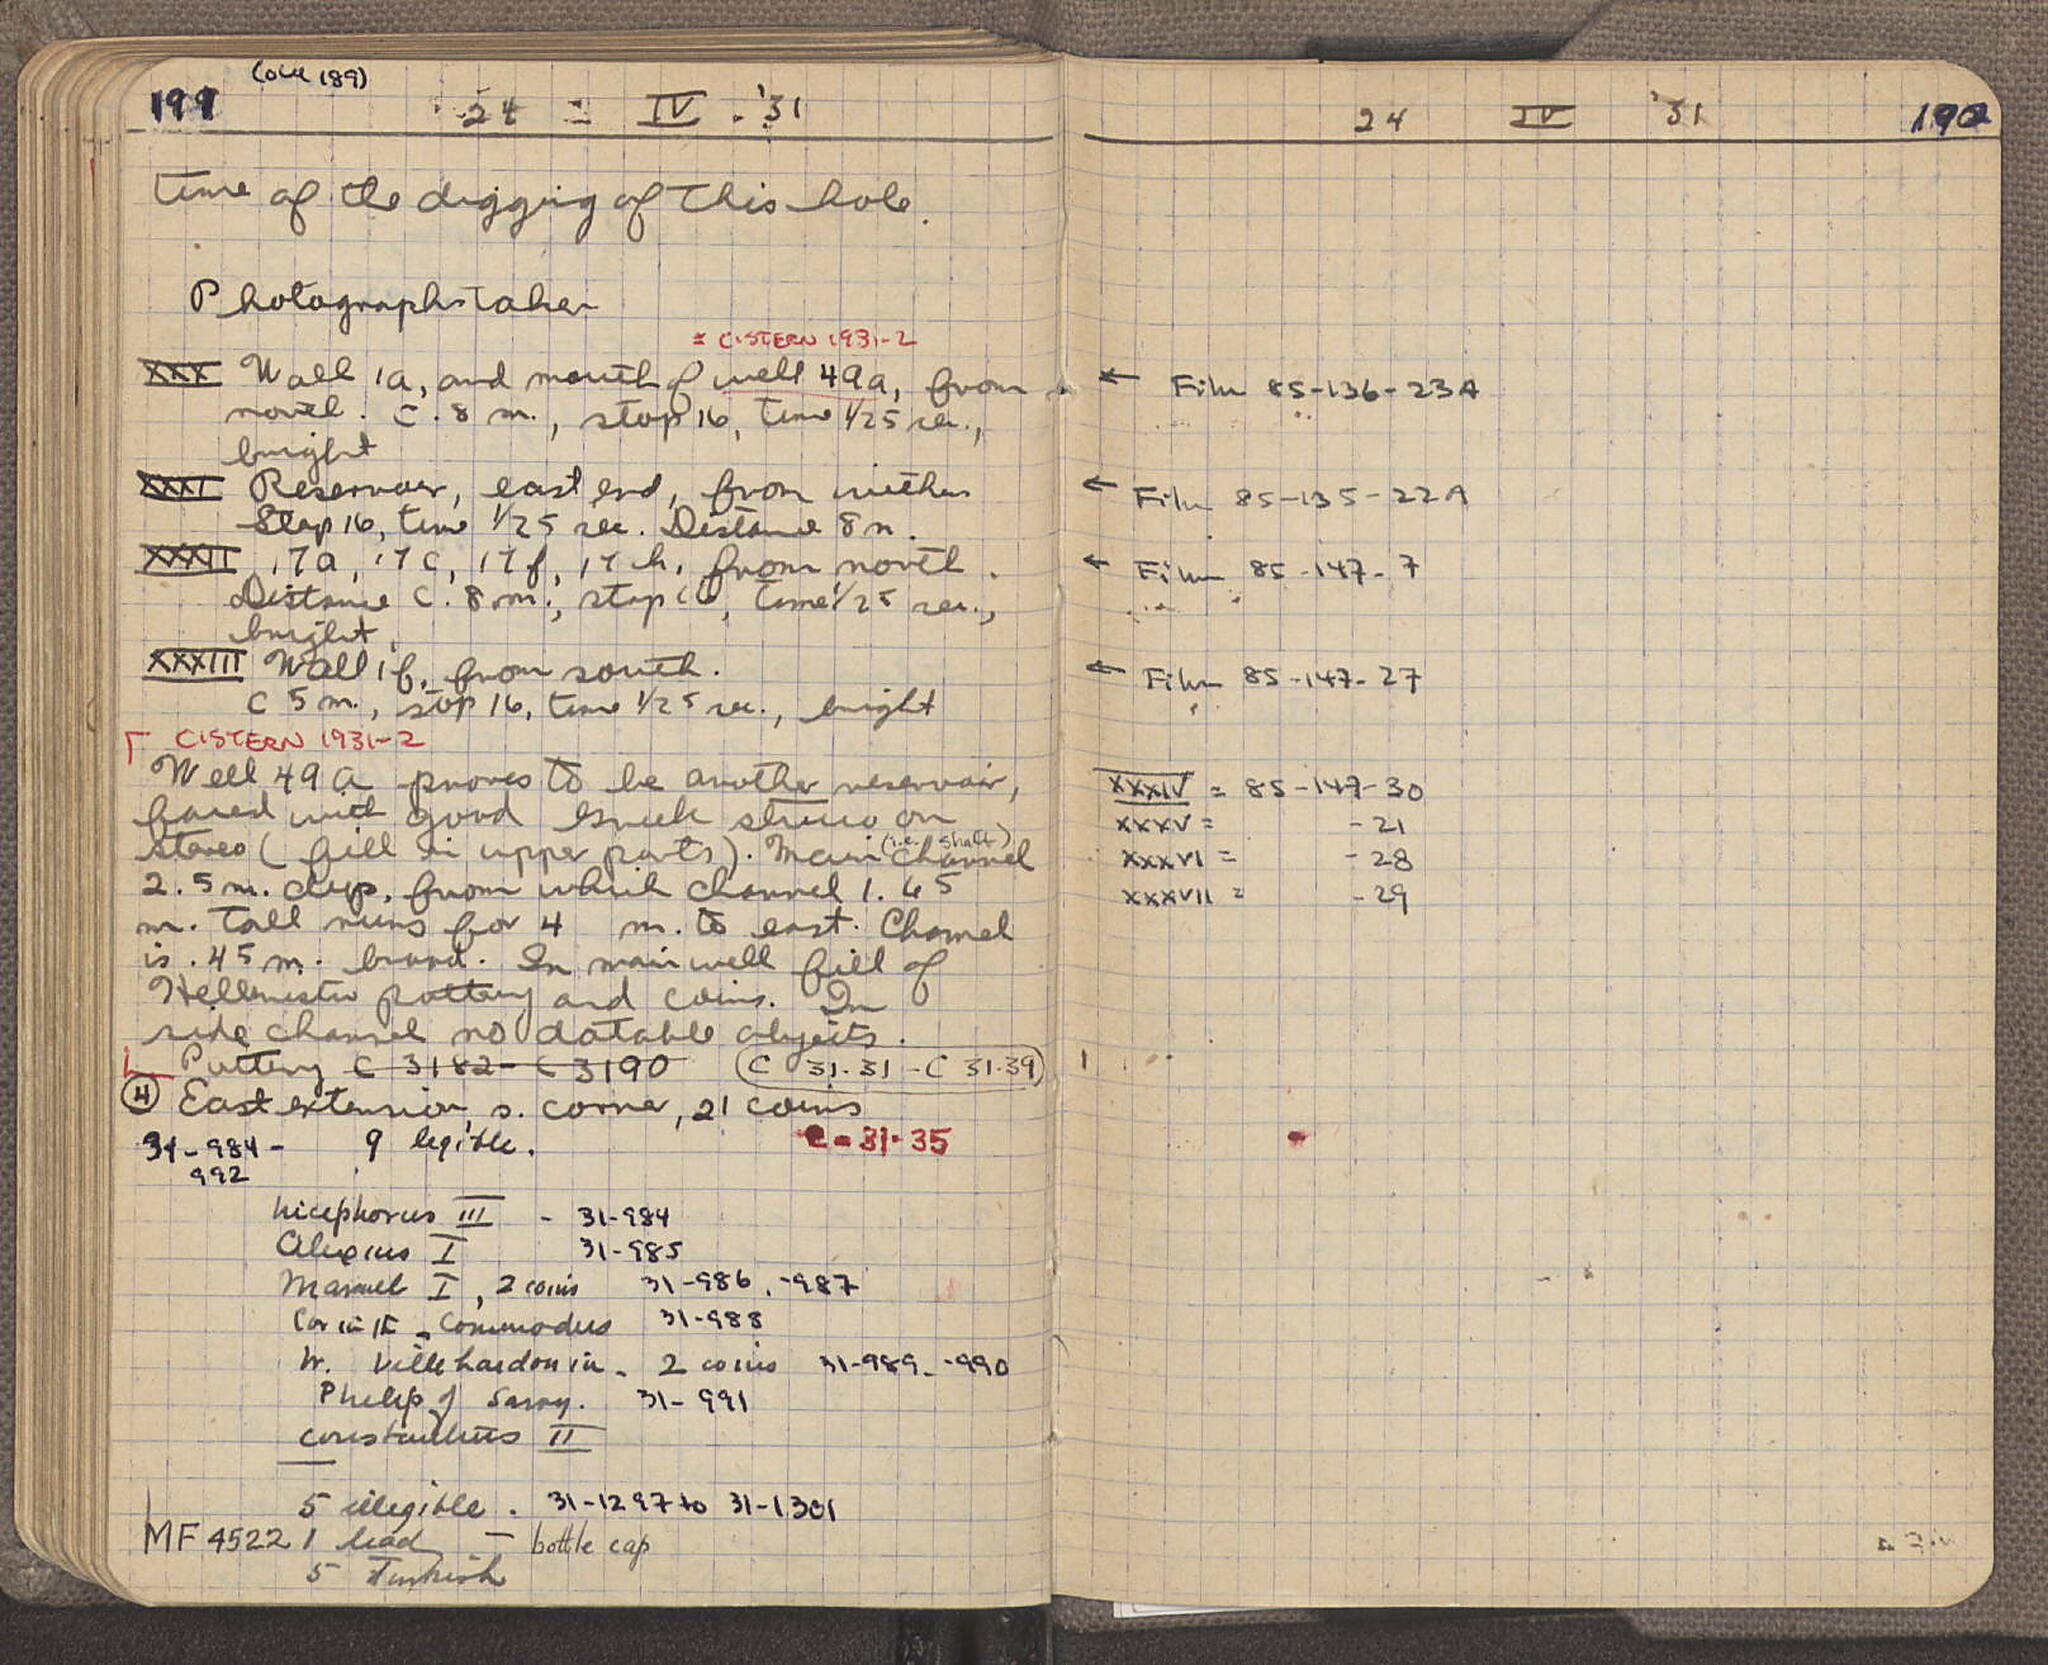 199
(old 189)
24 = IV . '31
time of the digging of this hole.
Photographs taken
= CISTERN 1931-2
XXX Wall 1a, and mouth of well 49a, from
north. C. 8 m., stop 16, time 1/25 sec.,
bright
XXXI Reservoir, east end, from within
Stop 16, time 1/25 sec. Distance 8 m.
XXXII 17a, 17c, 17f, 17h, from north.
Distance C. 8 m., stop 16, time 1/25 sec.,
bright,
XXXIII Wall 1f, from south.
C 5 m., stop 16, time 1/25 sec., bright
CISTERN 1931-2
Well 49a proves to be another reservoir,
faced with good Greek stucco on
stereo (fill in upper parts). Main (i.e. shaft) channel
2.5 m. deep, from which channel 1.65
m. tall runs for 4 m. to east. Channel
is .45 m. broad. In main well fill of
Hellenistic pottery and coins. In
side channel no datable objects.
Pottery C 3182 - C 3190 (C 31.31 - C 31.39)
4 East extension, s. corner, 21 coins
31-984- 9 legible. C-31-35
992
Nicephorus III - 31-984
Alexius I 31-985
Manuel I, 2 coins 31-986, -987
Corinth - Commodus 31-988
W. Villehardouin - 2 coins 31-989- -990
Philip of Savoy. 31-991
Constantius II
5 illegible. 31-1297 to 31-1301
MF 4522 1 lead — bottle cap
5 Turkish
24 IV '31
190
← Film 85-136-23A
← Film 85-135-22A
← Film 85-147-7
← Film 85-147-27
XXXIV = 85-147-30
XXXV = -21
XXXVI = -28
XXXVII = -29